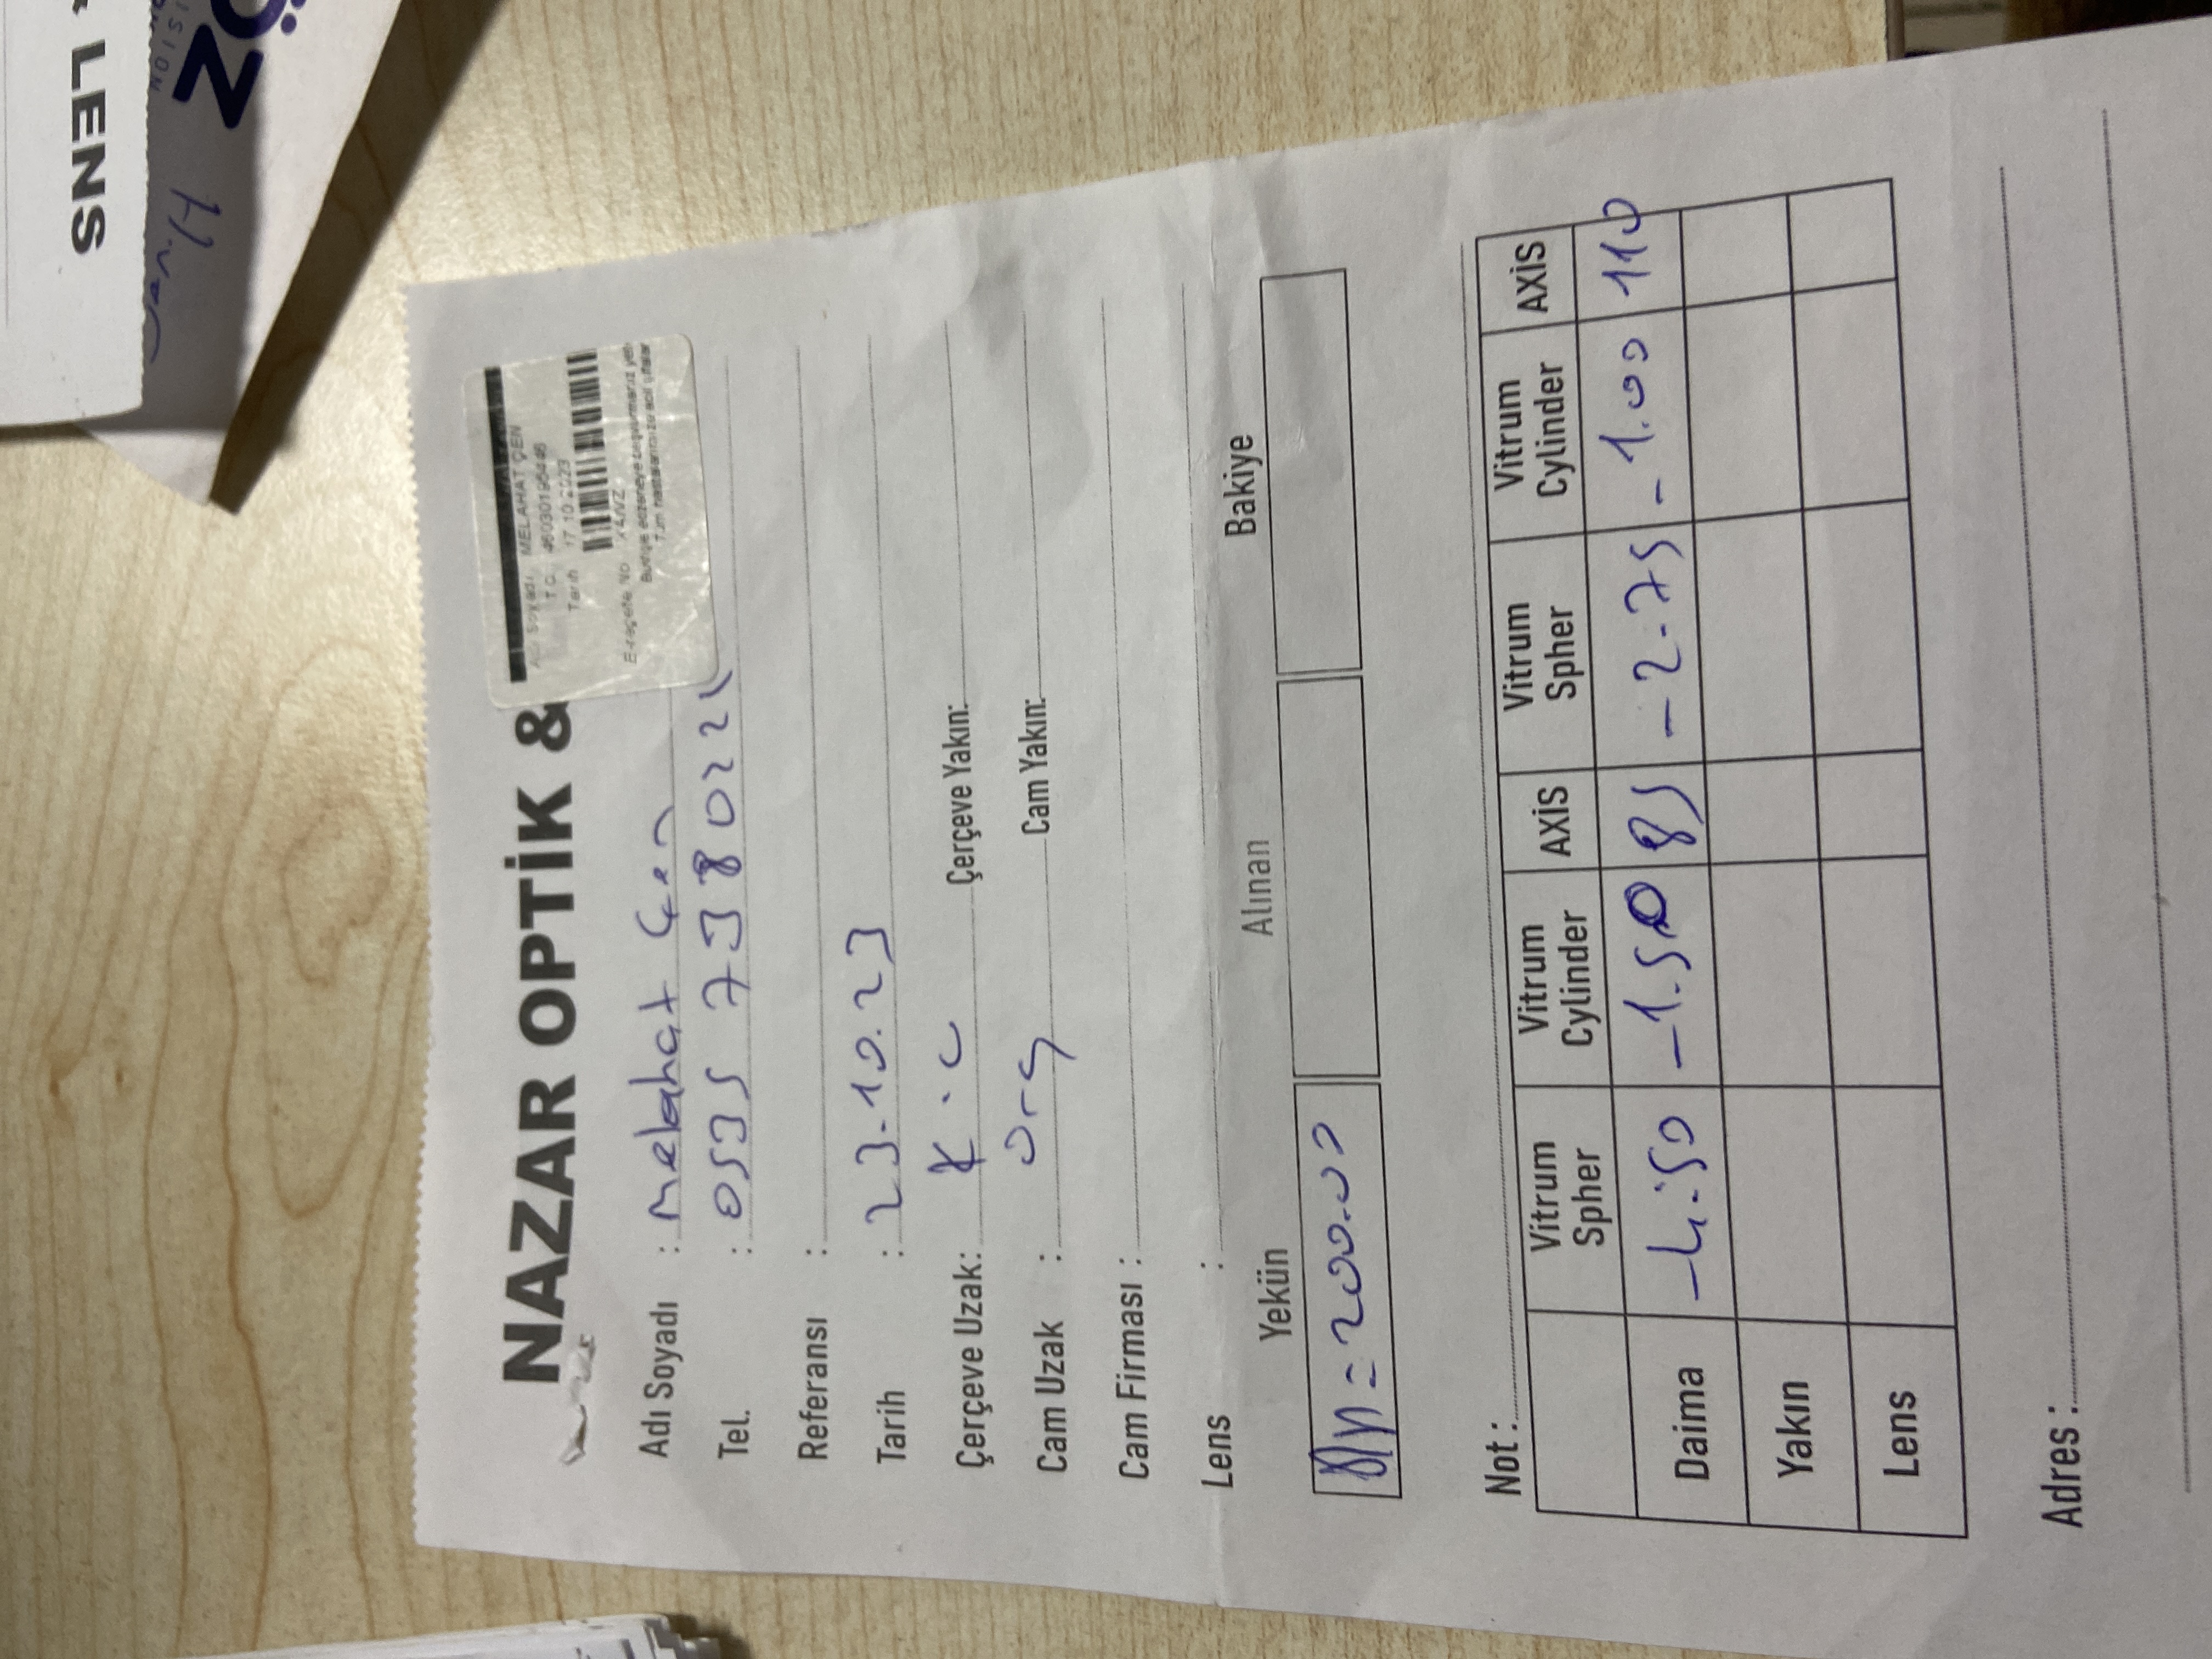 LENS
ÖZ
NAZAR OPTİK &
Adı Soyadı MELAHAT ÇEN
T.C. 46030195446
Tarih 17.10.2023
E-reçete No
Adı Soyadı : Melahat Çen
Tel. : 0535 738022
Referansı :
Tarih : 23.10.23
Çerçeve Uzak: K.C Çerçeve Yakın:
Cam Uzak : Org Cam Yakın:
Cam Firması :
Lens :
Yekün Alınan Bakiye
= 200.00
Not :
Vitrum Spher Vitrum Cylinder AXİS Vitrum Spher Vitrum Cylinder AXİS
Daima -4.50 -1.50 85 -2.75 -1.00 110
Yakın
Lens
Adres :